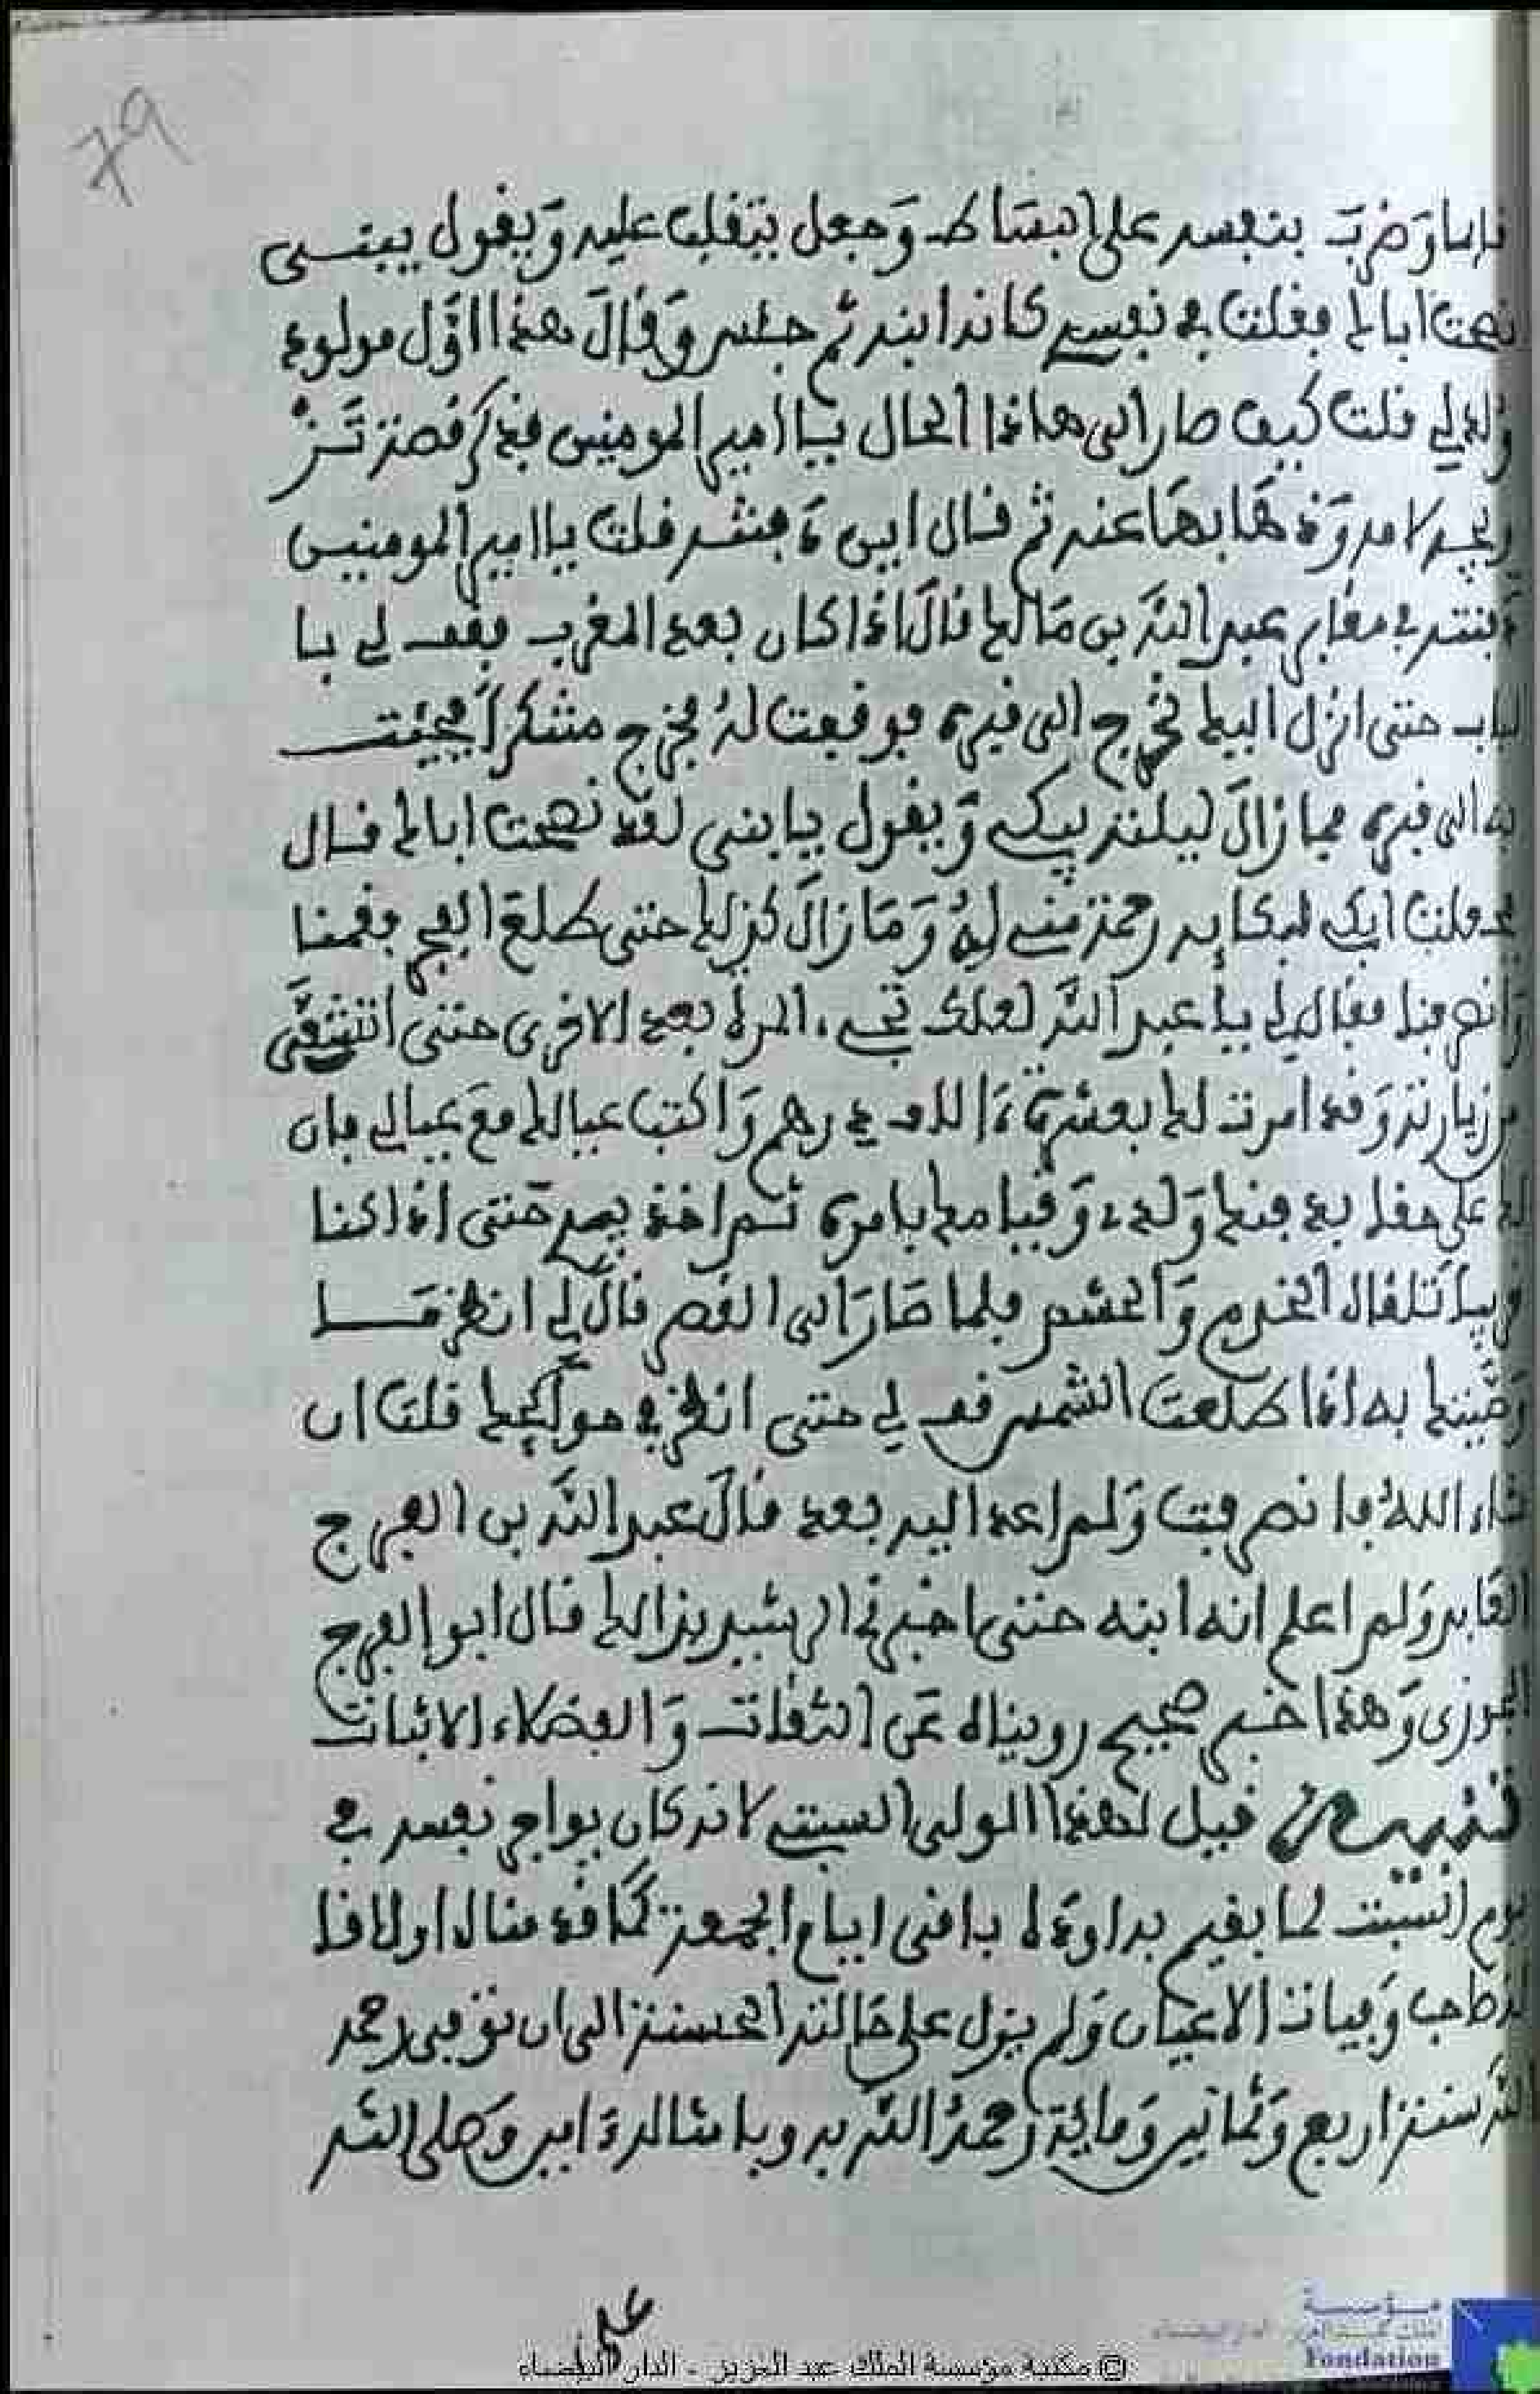 79
وضرب بنفسه على البساط وجعل يتقلب عليه ويقول يبنــى
نصحت اباك فقلت في نفسي كانه ابنه ثم جلس وقال هذا اول مولود
ولد لي قلت كيف صار الى هاذا الحال يا امير المومنين فذكر قصته
ثم قال اين دفنته قلت يا امير المومنين
دفنته في مقابر عبد الله بن مالك قال اذا كان بعد المغرب فقف لي با
لباب حتى انزل اليك نخرج الى قبره فوقفت له فخرج متنكرا فجئت
به الى قبره فما زال ليلته يبكي ويقول يا بني لقد نصحت اباك قال
فجعلت ابكي لبكايه رحمة مني له وما زال كذلك حتى طلع الفجر فقمنا
وانصرفنا فقال لي يا عبد الله لعلك تجيء المرة بعد الاخرى حتى
من زيارته وقد امرت لك بعشرة ءالاف درهم واكتب عيالك مع عيالي فان
لك علي حقا بدفنك ولدي وقيامك بامره ثم اخذ بيدي حتى اذا كنا
قريبا تلقاه الخدم والحشم فلما صار الى القصر قال لي انظر مــا
وصيتك به اذا طلعت الشمس قف لي حتى انظر في حوائجك قلت ان
شاء الله فانصرفت ولم اعد اليه بعد قال عبد الله بن الفرج
العابد ولم اعلم انه ابنه حتى اخبرني الرشيد بذالك قال ابو الفرج
الجوزي وهذا خبر صحيح رويناه عن الثقات والفضلاء الاثبات
تنبيه قيل لهذا الولي السبتي لانه كان يواجر نفسه في
يوم السبت لما يقيم به اوده في باقي ايام الجمعة كما قد مناله اولا فا
وبيانه الاعيان ولم يزل على حالته الحسنة الى ان توفي رحمه
الله سنة اربع وثمانين ومائة رحمه الله به وبامثاله ءامين وصلى الله
على
© مكتبة مؤسسة الملك عبد العزيز - الدار البيضاء
مؤسسة
الملك عبد العزيز الدار البيضاء
Fondation